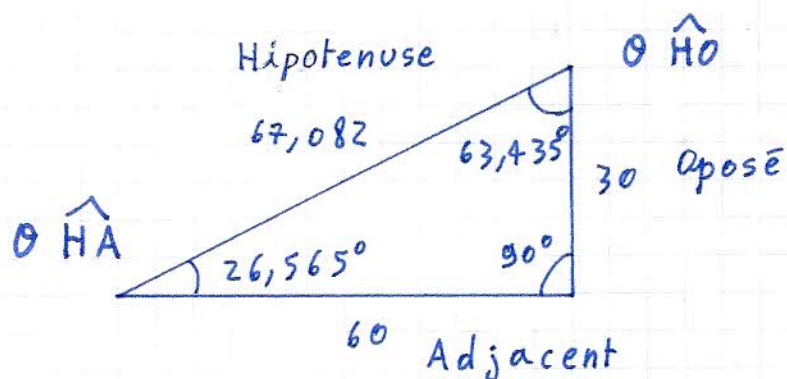 Hipotenuse
θ HO
67,082
63,435°
30 oposé
θ HA
26,565°
90°
60
Adjacent